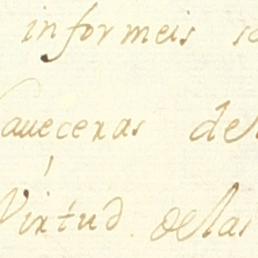 informeis so
caueceras del
Virtud delas